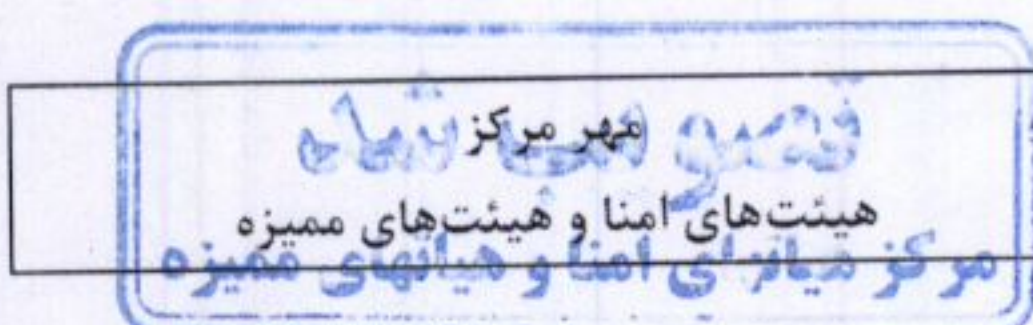 تصویب شد
مهر مرکز
هیئت‌های امنا و هیئت‌های ممیزه
مرکز هیأتهای امنا و هیأتهای ممیزه